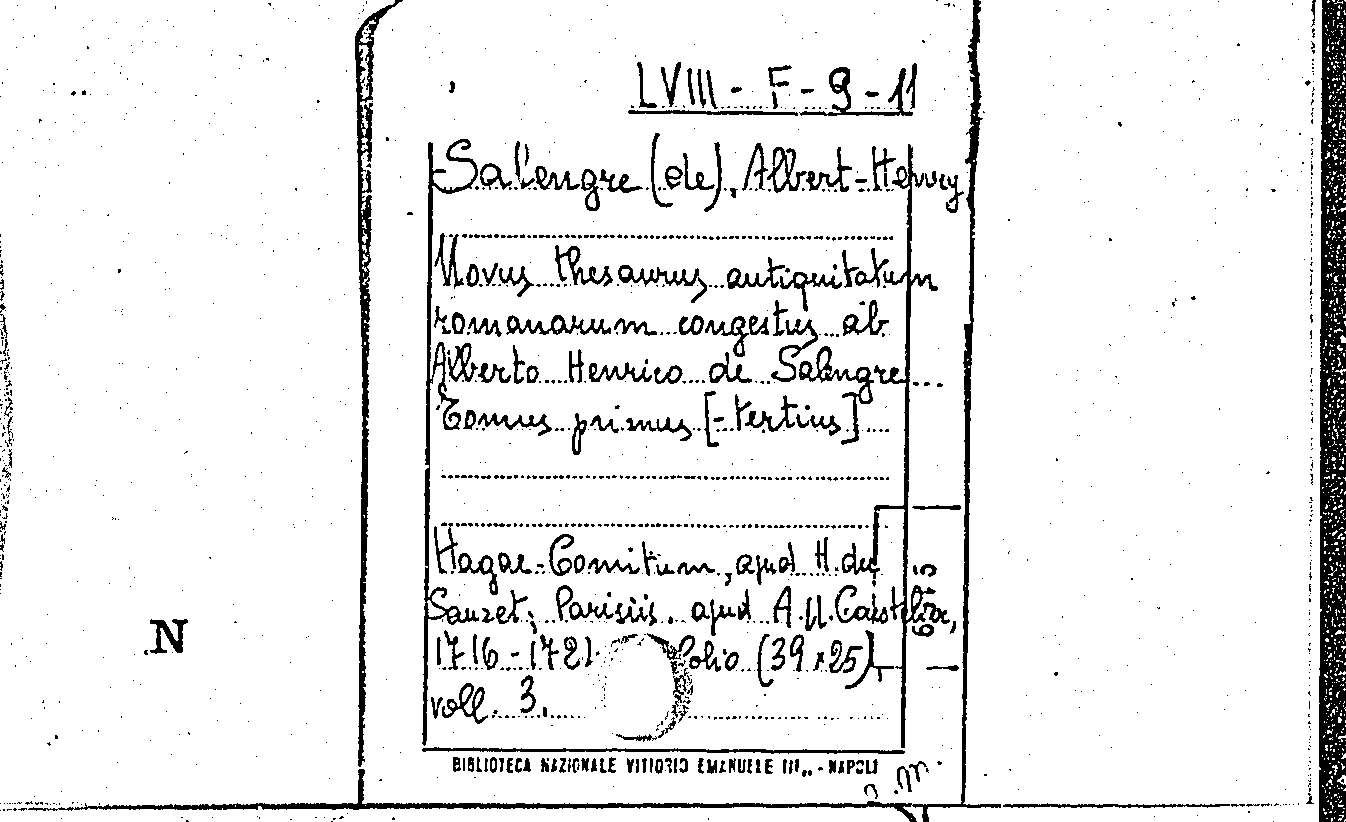 LVIII - F - 9 - 11
Sal'engre (de), Albert-Henry
Novus thesaurus antiquitatum
romanarum congestus ab
Alberto Henrico de Salengre...
Tomus primus [-tertius]
Hagae-Comitum, apud H. du
Sauzet; Parisiis, apud A. U. Coustelier,
1716-1721 folio (39x25),
voll. 3.
N
BIBLIOTECA NAZIONALE VITTORIO EMANUELE III,, - NAPOLI